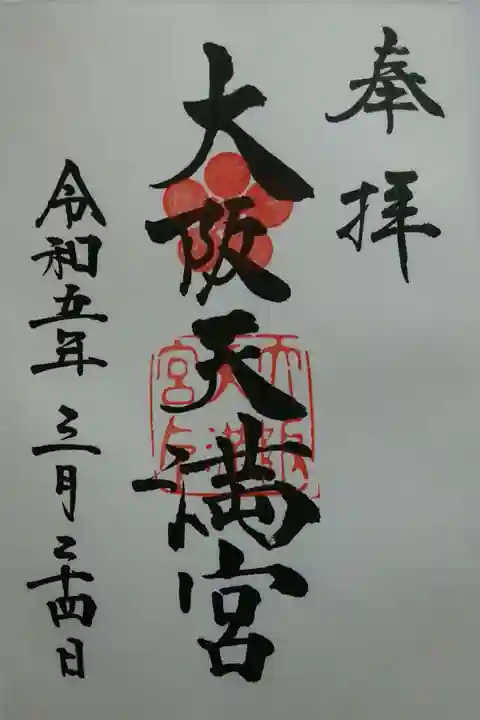 奉拝
大阪天満宮
令和五年 三月二十四日